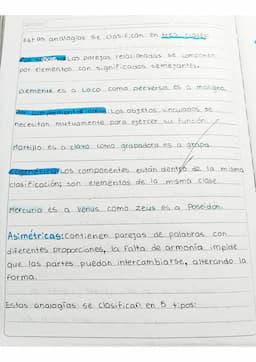 Estas analogías se clasifican en
Las parejas relacionadas se componen
por elementos con significados semejantes.
Demente es a Loco como perverso es a maligno.
Los objetos vinculados se
necesitan mutuamente para ejercer su función.
Martillo es a clavo como grapadora es a grapa.
Los componentes están dentro de la misma
clasificación; son elementos de la misma clase.
Mercurio es a Venus como Zeus es a Poseidón.
Asimétricas: Contienen parejas de palabras con
diferentes proporciones, la falta de armonía impide
que las partes puedan intercambiarse, alterando la
forma.
Estas analogías se clasifican en 5 tipos: